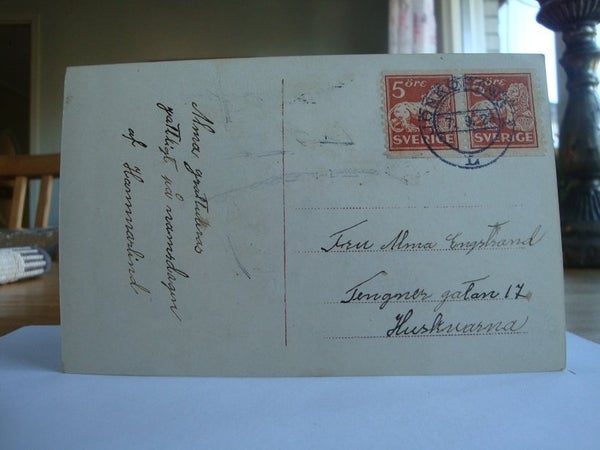 Alma gratuleras
hjärtligt på namsdagen
af Hammarlund
5 ÖRE
SVERIGE
5 ÖRE
SVERIGE
L
Fru Alma Engstrand
Tengner gatan 17
Huskvarna